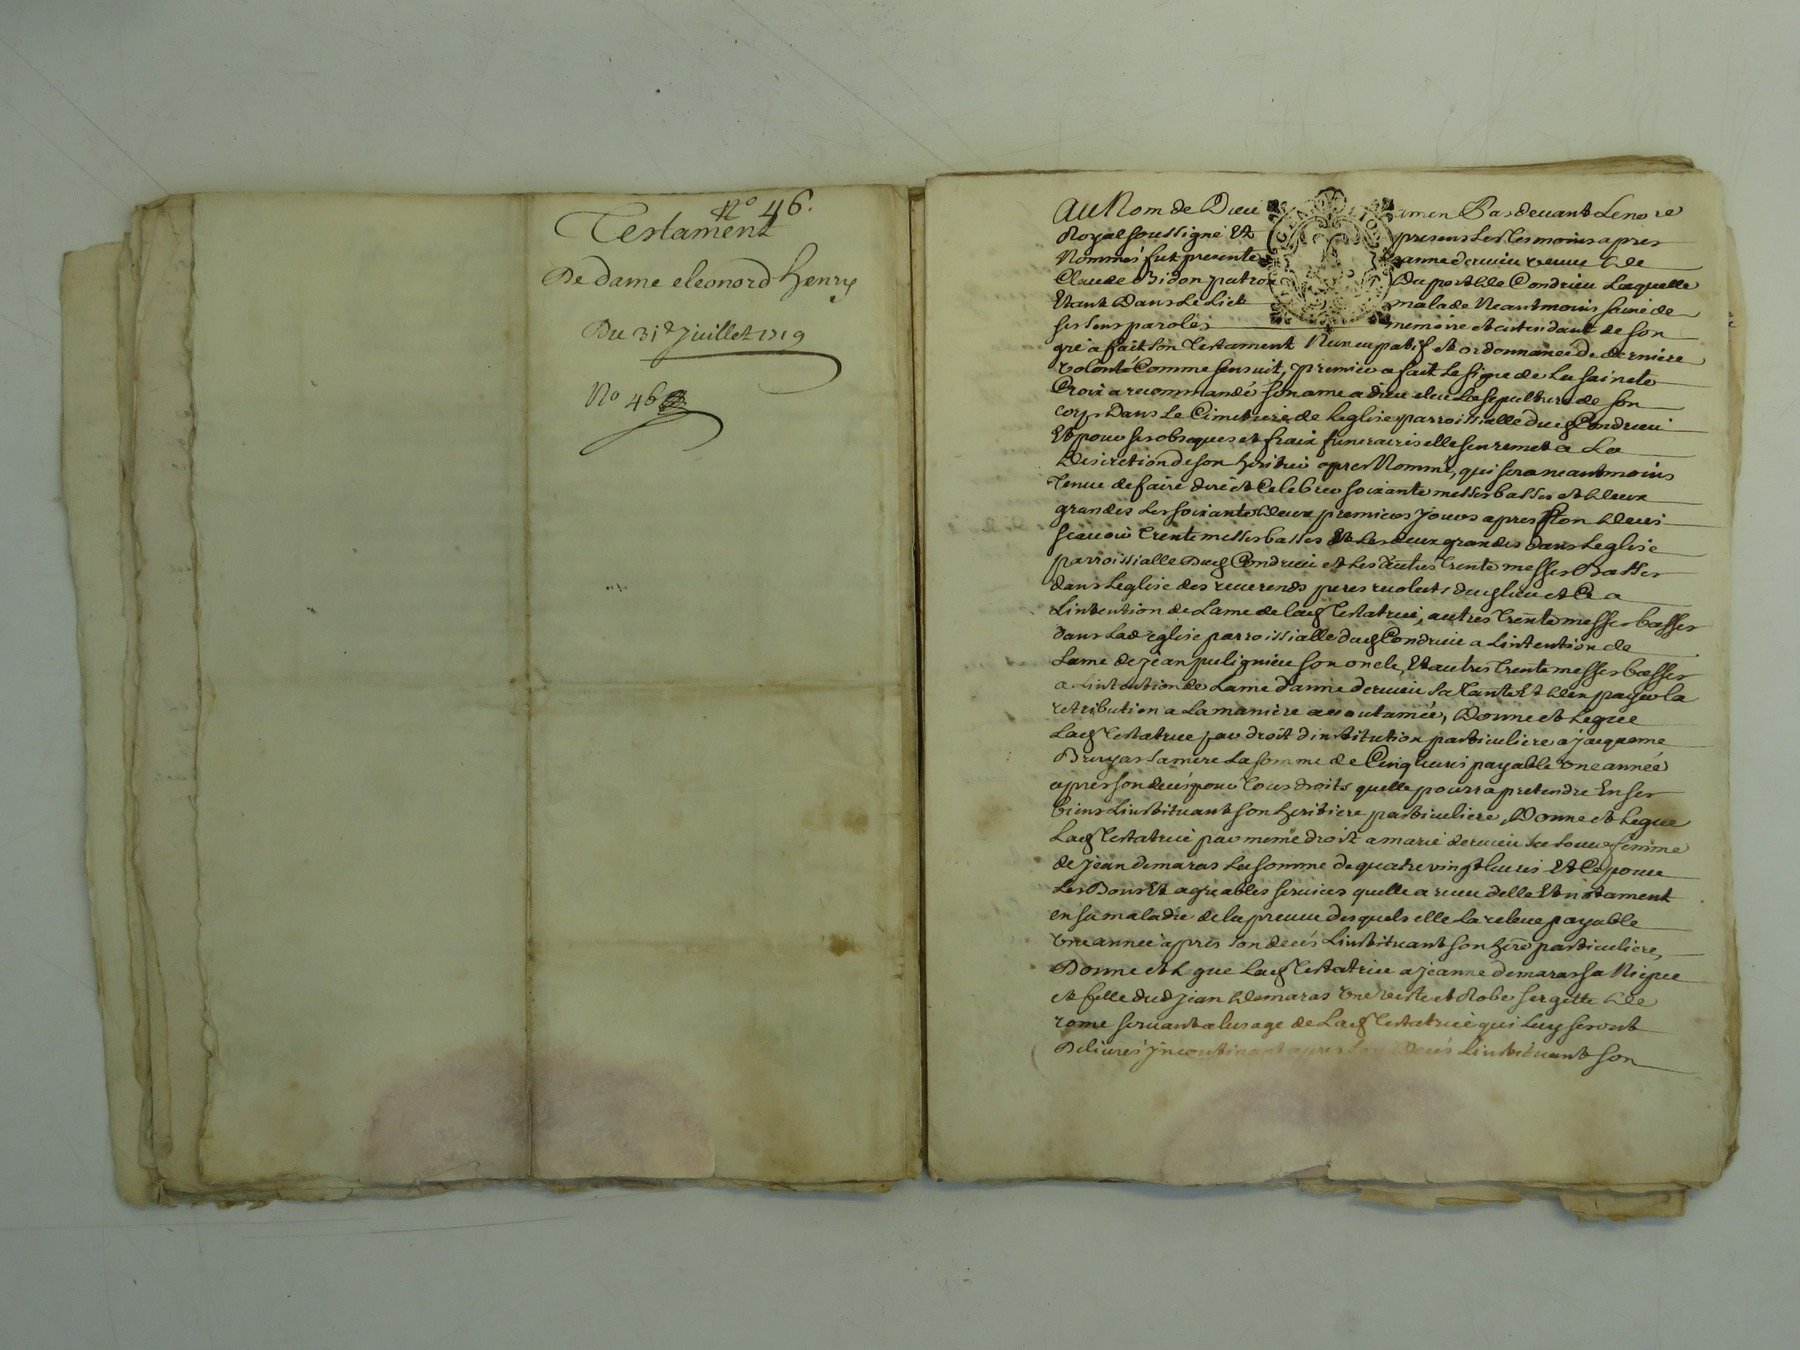 No 46.
Testament
De dame eleonord henry
Du 31e Juillet 1719
No 46
Au Nom de Dieu amen Pardevant Le nore
Royal soussigné Et presens Les tesmoins apres
Nommés fut presente anne dervieu veuve de
Claude Bidon patron du port de Condrieu Laquelle
Etant dans Le Lict malade Neantmoins saine de
ses sens paroles memoire et entendant de son
gré a fait son Testament Nuncupatif et ordonnance de derniere
volonté Comme sensuit, premier a fait Le signe de La saincte
Croix a recommandé son ame a dieu eleu La sepulture de son
corps dans Le Cimetiere de Leglise parroissialle dud Condrieu
Et pour ses obseques et fraix funeraires elle sen remet a La
discretion de son heritier apres Nommé, qui sera neantmoins
tenue de faire dire et Celebrer soixante messes basses et deux
grandes Les soixante deux premiers Jours apres son deces
scavoir trente messes basses Et Les deux grandes dans Leglise
parroissialle dud Condrieu et Les autres trente messes Basses
dans Leglise des reverends peres recolets dud lieu et Ce a
Lintention de Lame de lad Testatrice, autres trente messes basses
dans Lad eglise parroissialle dud Condrieu a Lintention de
Lame de jean pulignieu son oncle, Et autres trente messes basses
a Lintention de Lame danne dervieu sa tante Et den payer la
retribution a La maniere accoutumée, Donne et Legue
Lad Testatrice par droit dinstitution particuliere a jacqueme
Bruyas sa mere La somme de Cinq livres payable Une année
apres son deces pour tous droits quelle pourra pretendre En ses
biens Linstituant son heritiere particuliere, Donne et Legue
Lad Testatrice par meme droit a marie dervieu sa soeur femme
de jean demaras La somme de quatre vingt livres Et Ce pour
Les Bons Et agreables services quelle a receu delle Et notament
en sa maladie de la preuve desquels elle La releve payable
Une annee apres son deces Linstituant son here particuliere,
Donne et L gue Lad Testatrice a jeanne demaras sa Niepce
et fille dud jean demaras Une veste et Robe sergette de
rome servant a lusage de Lad Testatrice qui Luy seront
Delivrés Incontinant apres son deces Linstituant son